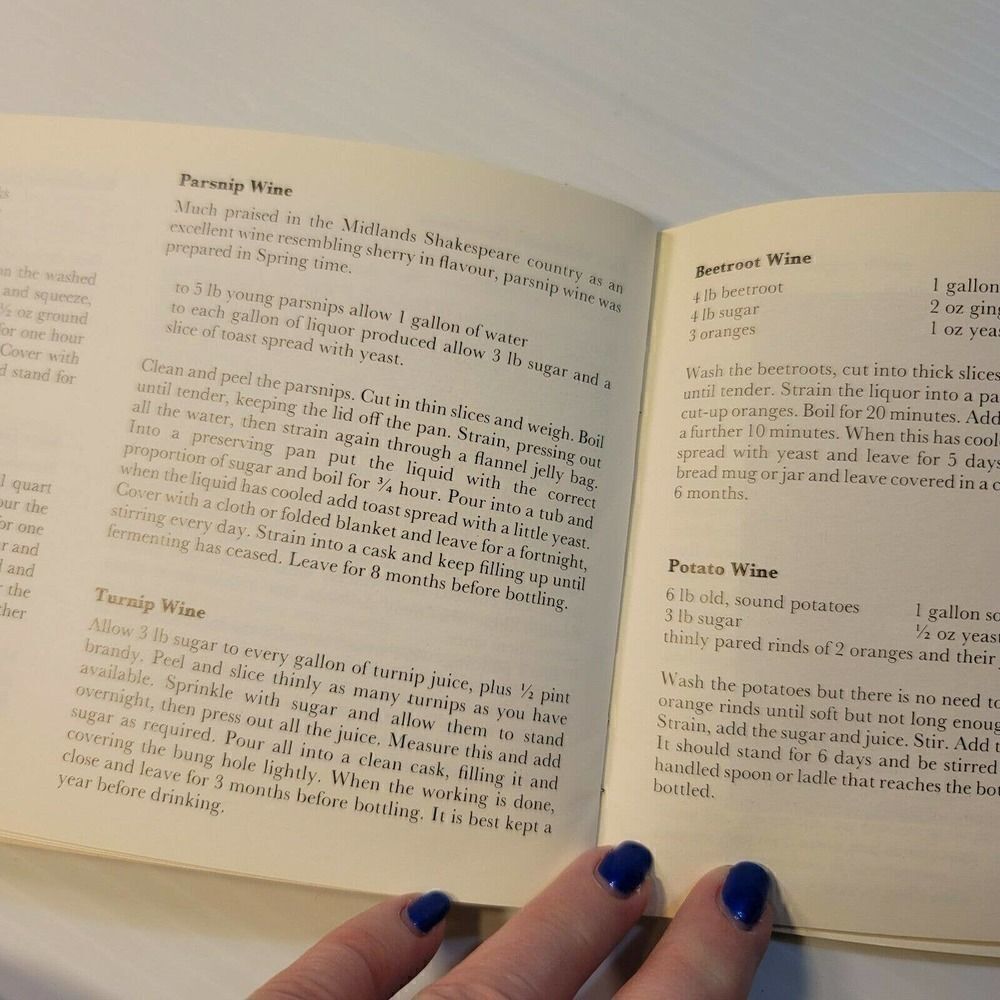 an the washed
and squeeze,
½ oz ground
for one hour
Cover with
d stand for
l quart
our the
or one
r and
and
the
Parsnip Wine
Much praised in the Midlands Shakespeare country as an
excellent wine resembling sherry in flavour, parsnip wine was
prepared in Spring time.
to 5 lb young parsnips allow 1 gallon of water
to each gallon of liquor produced allow 3 lb sugar and a
slice of toast spread with yeast.
Clean and peel the parsnips. Cut in thin slices and weigh. Boil
until tender, keeping the lid off the pan. Strain, pressing out
all the water, then strain again through a flannel jelly bag.
Into a preserving pan put the liquid with the correct
proportion of sugar and boil for ¾ hour. Pour into a tub and
when the liquid has cooled add toast spread with a little yeast.
Cover with a cloth or folded blanket and leave for a fortnight,
stirring every day. Strain into a cask and keep filling up until
fermenting has ceased. Leave for 8 months before bottling.
Turnip Wine
Allow 3 lb sugar to every gallon of turnip juice, plus ½ pint
brandy. Peel and slice thinly as many turnips as you have
available. Sprinkle with sugar and allow them to stand
overnight, then press out all the juice. Measure this and add
sugar as required. Pour all into a clean cask, filling it and
covering the bung hole lightly. When the working is done,
close and leave for 3 months before bottling. It is best kept a
year before drinking.
Beetroot Wine
4 lb beetroot 1 gallon
4 lb sugar 2 oz ging
3 oranges 1 oz yeas
Wash the beetroots, cut into thick slices
until tender. Strain the liquor into a pa
cut-up oranges. Boil for 20 minutes. Add
a further 10 minutes. When this has cool
spread with yeast and leave for 5 days
bread mug or jar and leave covered in a c
6 months.
Potato Wine
6 lb old, sound potatoes 1 gallon so
3 lb sugar ½ oz yeast
thinly pared rinds of 2 oranges and their
Wash the potatoes but there is no need to
orange rinds until soft but not long enoug
Strain, add the sugar and juice. Stir. Add t
It should stand for 6 days and be stirred
handled spoon or ladle that reaches the bot
bottled.